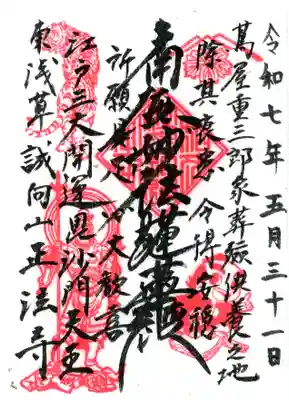 令和七年五月三十一日
蔦屋重三郎家葬蹟供養之地
除其衰患 令得安穏
南無妙法蓮華経
祈願 大歓喜
江戸三大開運毘沙門天王
東浅草 誠向山正法寺